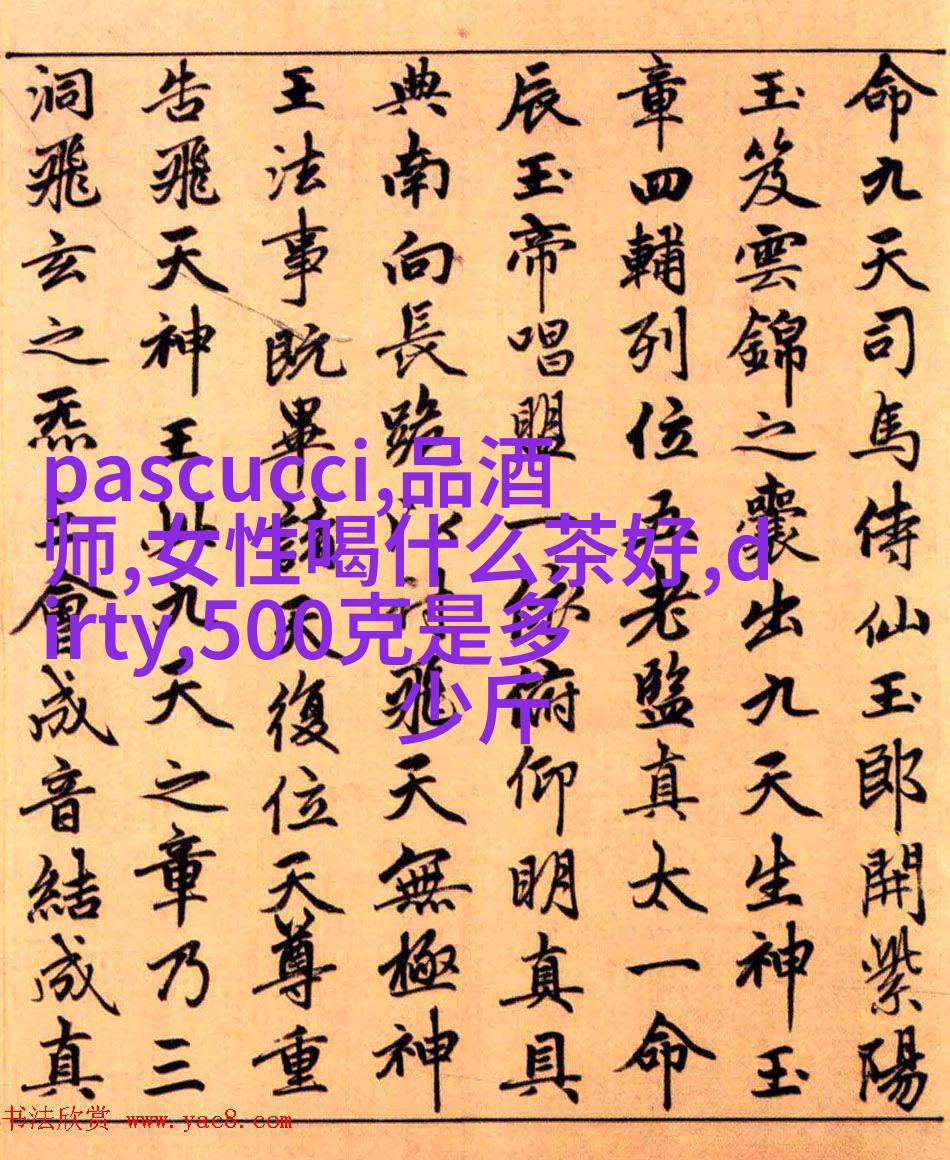 命九天司馬侍仙玉郎開紫陽
玉笈雲錦之囊出九天生神玉
章四輔列位五老監真太一命
辰玉帝唱盟一俯仰明真具
典南向長跪飛天無極神
王法事既畢諸天復位天尊重
告飛天神王此九天之章乃三
洞飛玄之炁會成音結成真
pascucci,品酒
师,女性喝什么茶好,d
irty,500克是多
少斤
书法欣赏 www.yac8.com